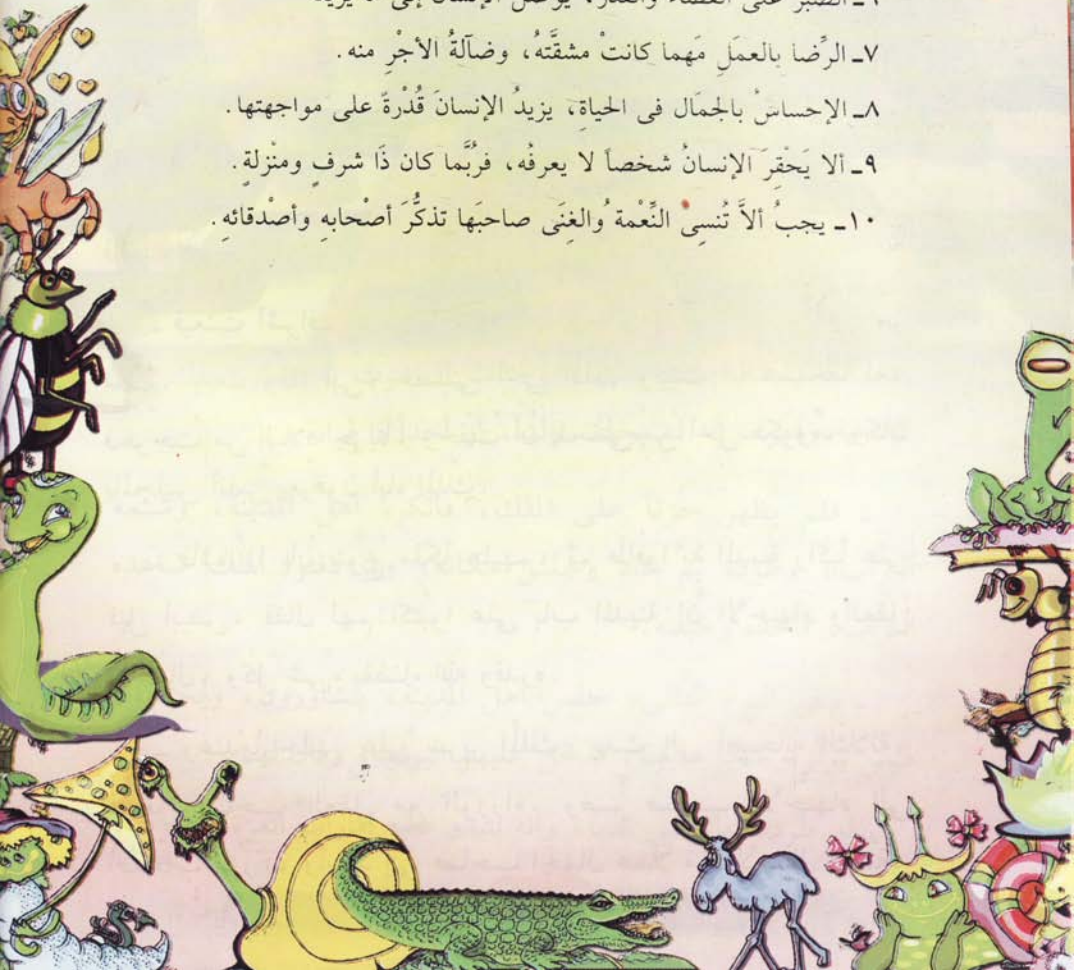 ٦ـ الصبر على القضاء والقدر، يوصل الإنسان إلى ما يريد
٧ـ الرِّضا بالعمَلِ مَهما كانتْ مشقَّتهُ، وضآلةُ الأجْرِ منه.
٨ـ الإحساسُ بالجمَال فى الحياةِ، يزيدُ الإنسانَ قُدْرةً على مواجهتها.
٩ـ ألا يَحْقِرَ الإنسانُ شخصاً لا يعرفُه، فرُبَّما كان ذَا شرفٍ ومنْزلةٍ.
١٠ـ يجبُ ألاَّ تُنسِىْ النِّعْمة ُوالغِنَى صاحبَها تذكُّرَ أصْحابهِ وأصْدقائهِ.